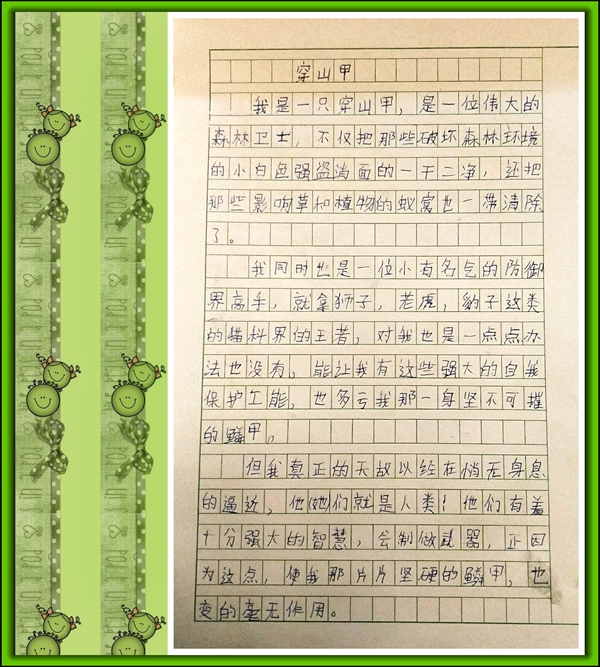 穿山甲
我是一只穿山甲，是一位伟大的
森林卫士，不仅把那些破坏森林环境
的小白色强盗消面的一干二净，还把
那些影响草和植物的蚁窝也一带清除
了。
我同时也是一位小有名气的防御
界高手，就拿狮子，老虎，豹子这类
的猫科界的王者，对我也是一点点办
法也没有，能让我有这些强大的自我
保护工能，也多亏我那一身坚不可摧
的鳞甲。
但我真正的天敌以经在悄无身息
的逼近，他(她)们就是人类！他们有着
十分强大的智慧，会制做武器，正因
为这点，使我那片片坚硬的鳞甲，也
变的毫无作用。